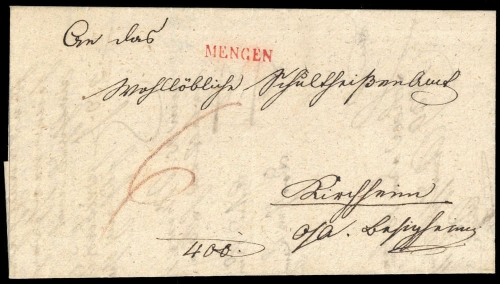 An das
MENGEN
Wohllöbliche Schultheißenamt
6
Kirchheim
O/A. Besigheim
400.